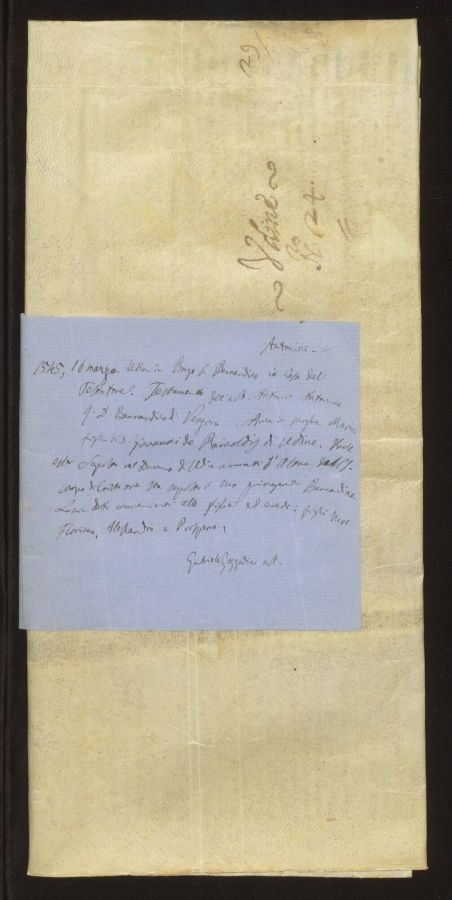 29/
~ Udine ~
N. 124.
Antonini.
1545, 16 marzo. Udine in Borgo S. Bernardino in casa del
Testatore. Testamento del Antonio Antonino
q. D. Bernardino di Aveva in moglie Maria
figlia di Giovanni de Rainoldis di Udine. Vuole
esser sepolto nel Duomo di Udine avanti l'Altare del SS.
Corpo di Cristo ove sta sepolto il suo Bernardino.
Lascia doti convenienti alle figlie ed eredi i figli
Floriano, Alessandro e Prospero.
Gabriele not.